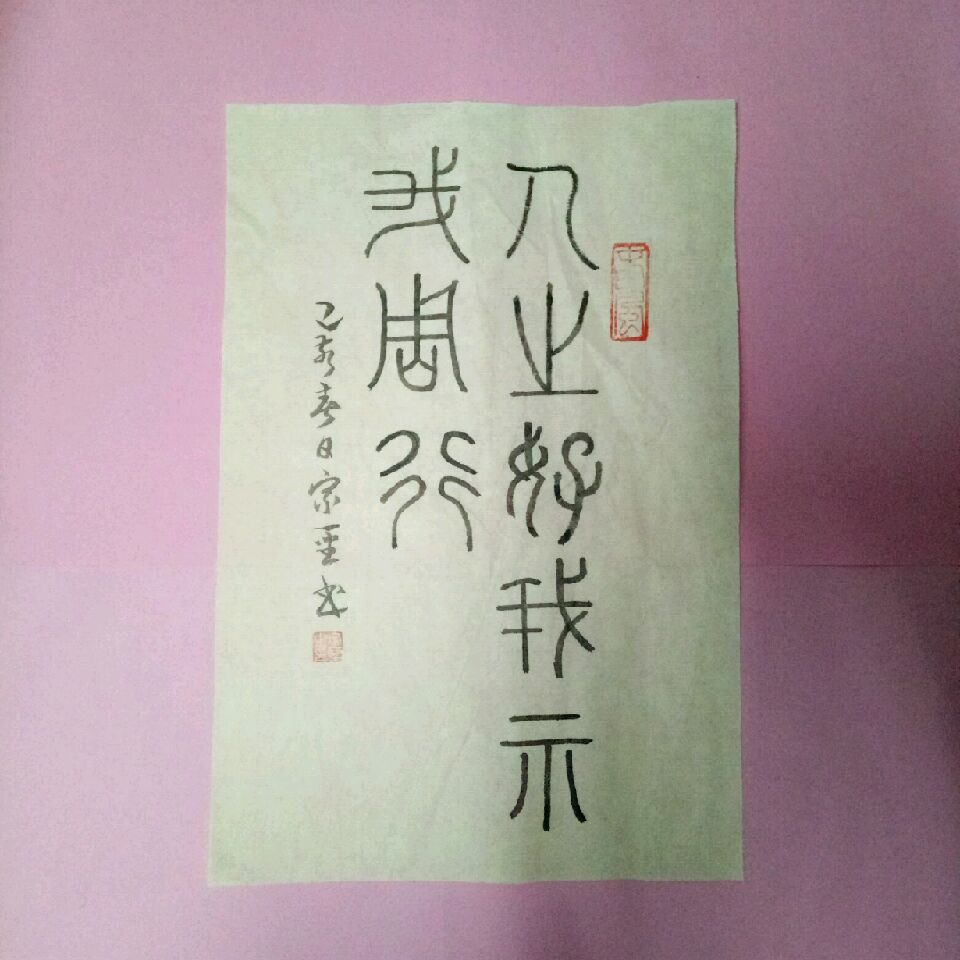 人之好我示
我周行
己亥春日宗书